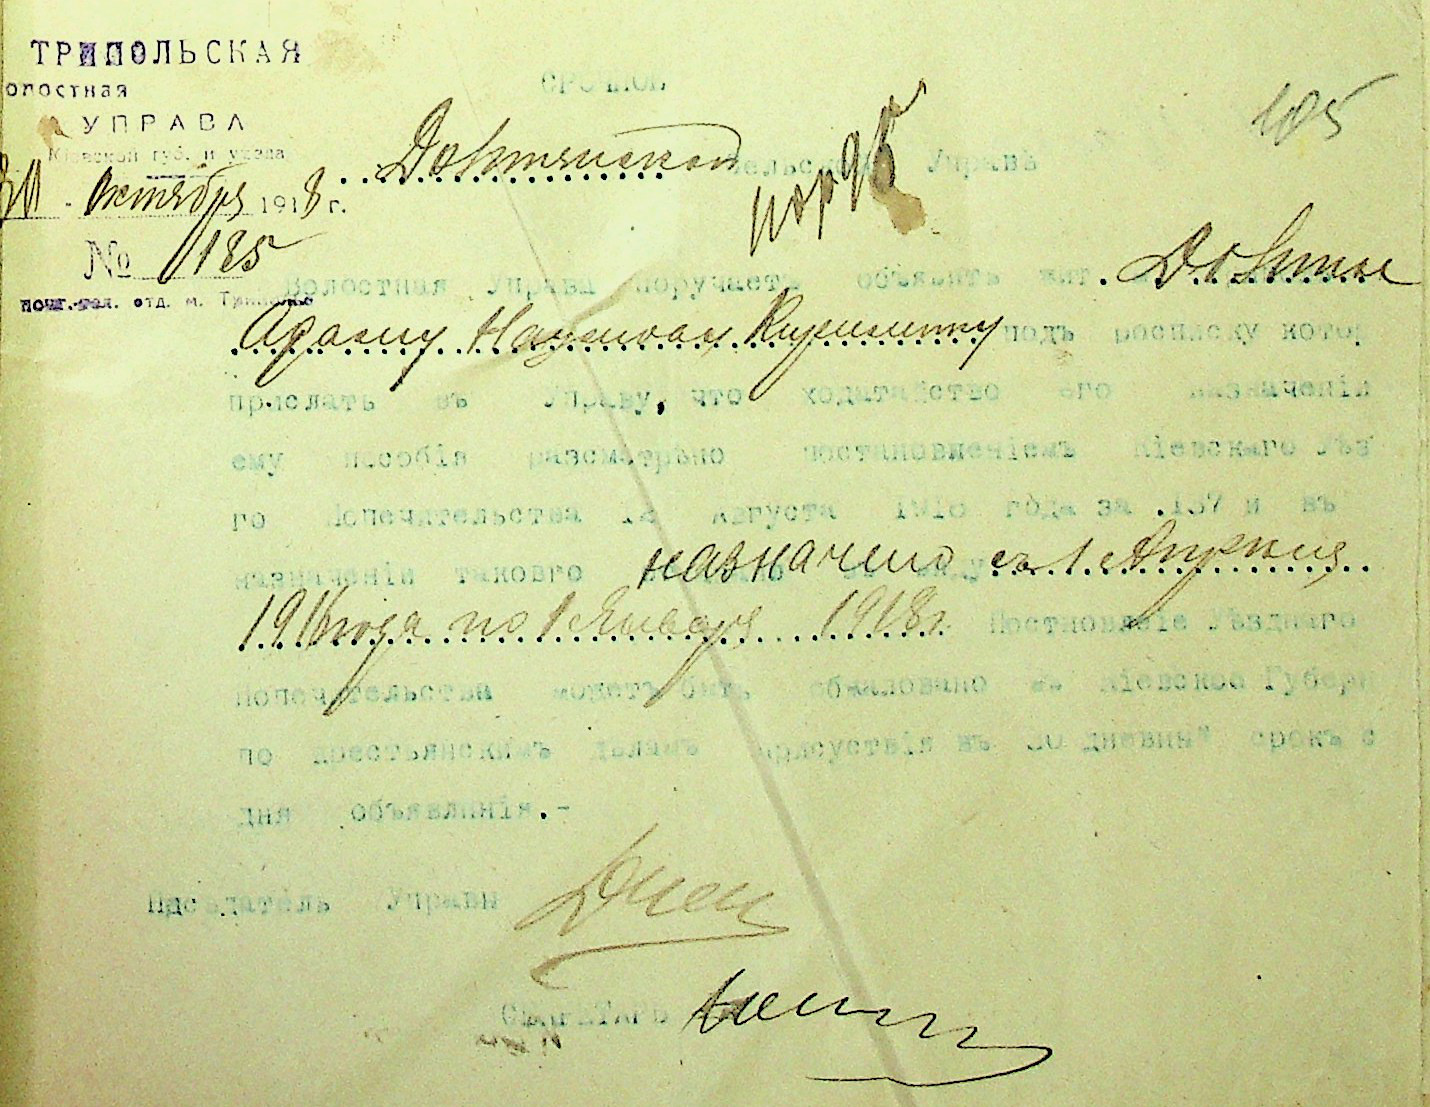 ТРИПОЛЬСКАЯ
олостная
УПРАВА
Кіевской губ. и уезда
октября 1918 г.
№ 185
почт.-тел. отд. м. Триполье
СРОЧНОЕ
105
Довтянской сельской Управѣ
Волостная Управа поручаетъ объявить жит. Довтяе
Адаму Наумовому подъ росписку котор
прислать въ Управу, что ходатайство его назначеніи
ему пособія разсмотрѣно постановленіемъ Кіевскаго Уѣз
го Попечительства 12 Августа 1918 года за .137 и въ
назначеніи такого назначено съ 1 Апреля
1916 года по 1 Января 1918 г. Постновленіе Уѣзднаго
Попечительства можетъ быть обжаловано въ Кіевское Губерн
по крестьянскимъ дѣламъ присуствія въ 30 дневны срокъ с
дня объявлинія.-
Управи
СЕКРЕТАРЬ